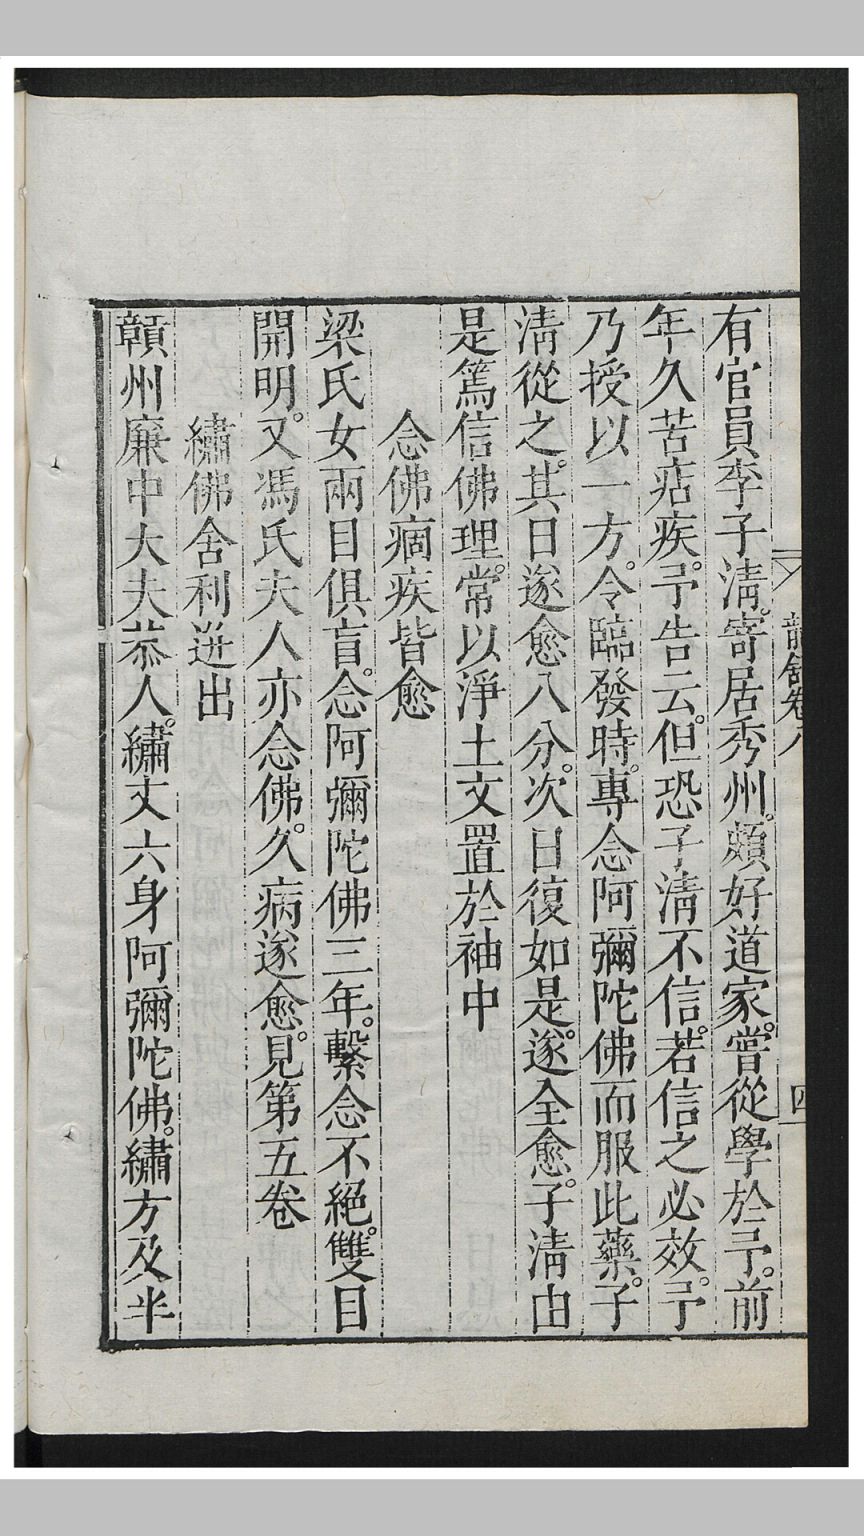 龍舒卷八
四
有官員李子淸。寄居秀州。頗好道家。嘗從學於予。前
年久苦痁疾。予告云。但恐子淸不信。若信之必效。予
乃授以一方。令臨發時。專念阿彌陀佛而服此藥。子
淸從之。其日遂愈八分。次日復如是。遂全愈。子淸由
是篤信佛理。常以淨土文置於袖中
念佛痼疾皆愈
梁氏女兩目俱盲。念阿彌陀佛三年。繫念不絕。雙目
開明。又馮氏夫人亦念佛。久病遂愈。見第五卷
繡佛舍利迸出
贛州廉中大夫恭人。繡丈六身阿彌陀佛。繡方及半